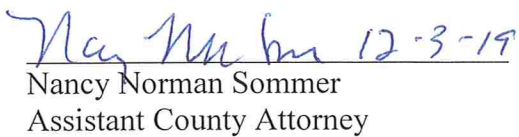 12-3-19
Nancy Norman Sommer
Assistant County Attorney